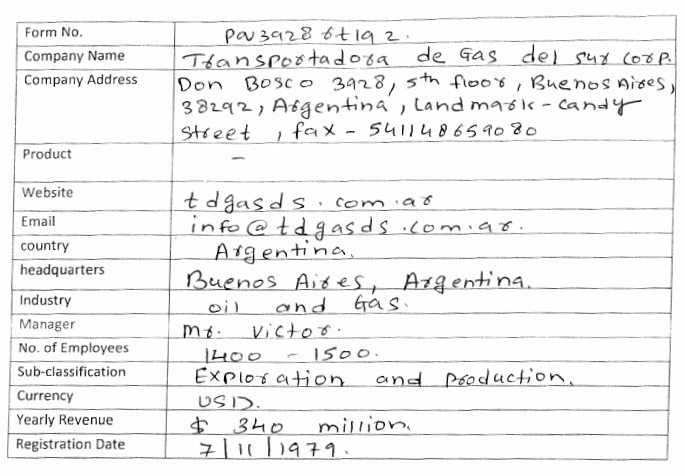 Form No. Pav39286t192.
Company Name Transportadora de Gas del sur corp.
Company Address Don Bosco 3928, 5th floor, Buenos Aires,
38292, Argentina, Landmark - candy
street, fax - 541148659080
Product -
Website tdgasds.com.ar
Email info@tdgasds.com.ar.
country Argentina.
headquarters Buenos Aires, Argentina.
Industry oil and Gas.
Manager Mr. Victor.
No. of Employees 1400 - 1500.
Sub-classification Exploration and Production.
Currency USD.
Yearly Revenue $ 340 million.
Registration Date 7/11/1979.